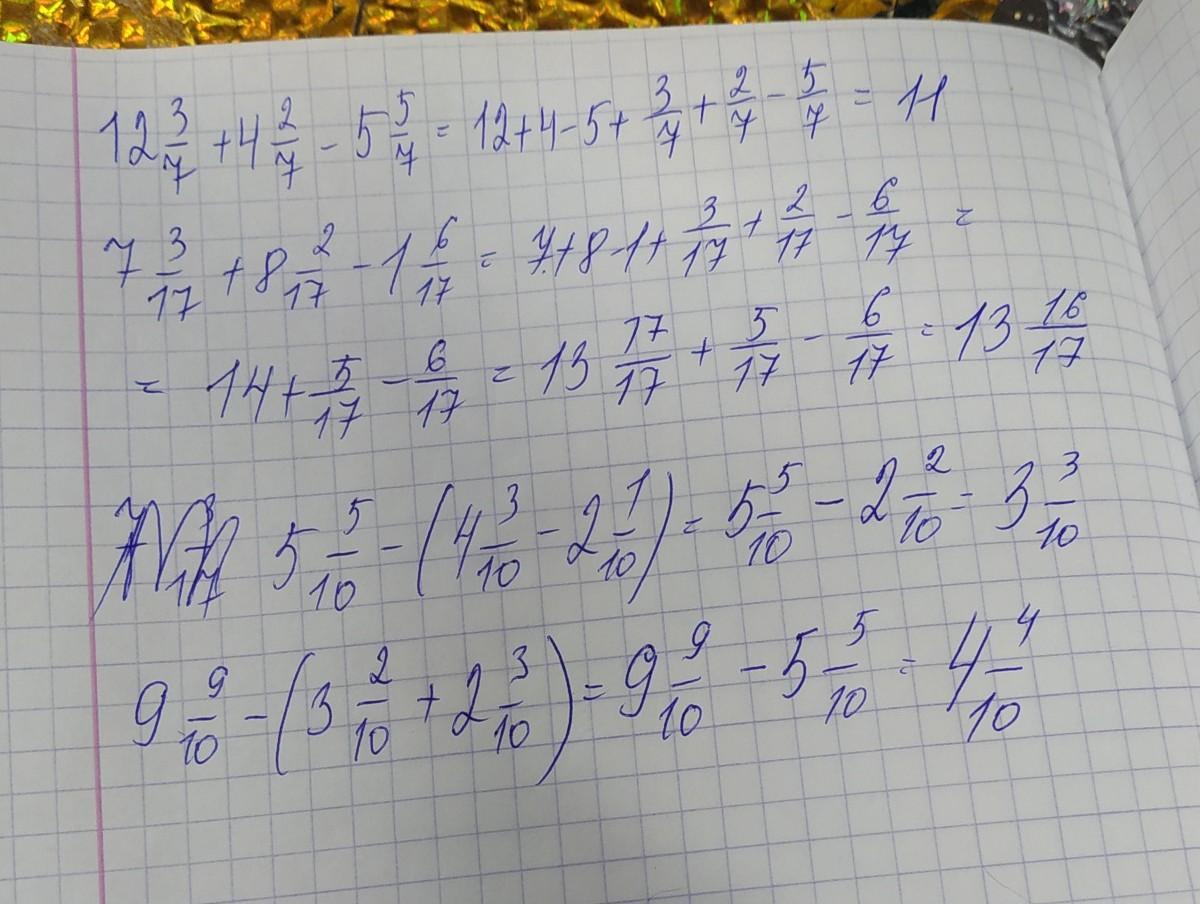 12 3/7 + 4 2/7 - 5 5/7 = 12+4-5+ 3/7 + 2/7 - 5/7 = 11
7 3/17 + 8 2/17 - 1 6/17 = 7+8-1+ 3/17 + 2/17 - 6/17 =
= 14+ 5/17 - 6/17 = 13 17/17 + 5/17 - 6/17 = 13 16/17
5 5/10 - (4 3/10 - 2 1/10) = 5 5/10 - 2 2/10 = 3 3/10
9 9/10 - (3 2/10 + 2 3/10) = 9 9/10 - 5 5/10 = 4 4/10